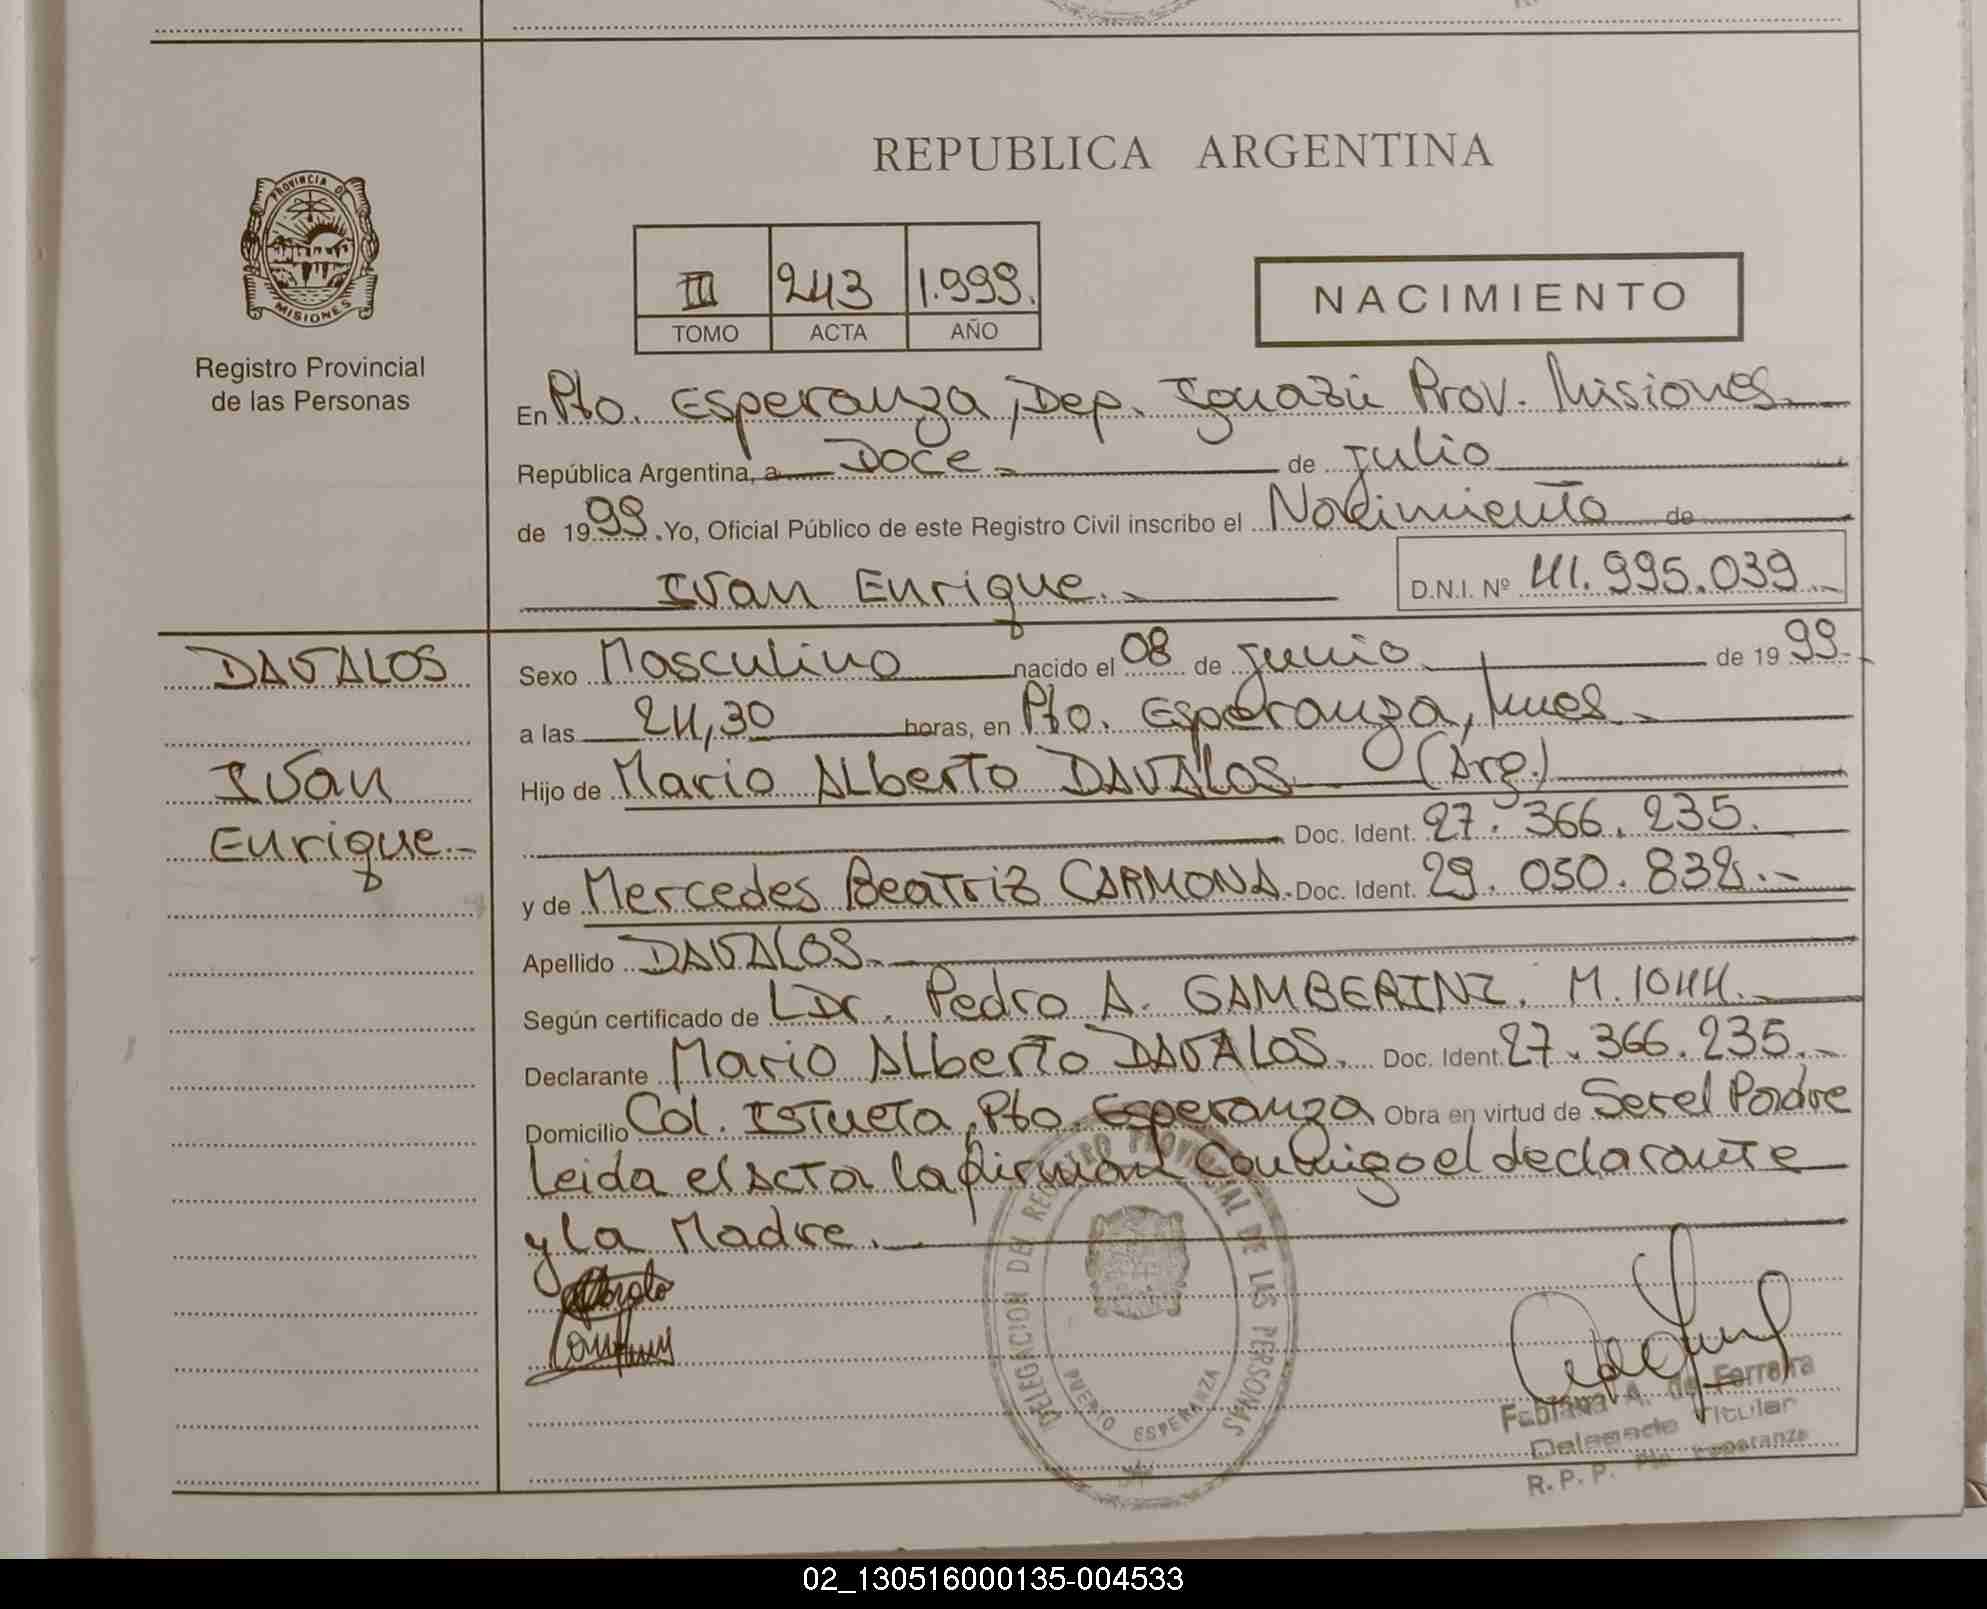 REPUBLICA ARGENTINA
PROVINCIA DE
MISIONES
Registro Provincial
de las Personas
III 243 1.999.
TOMO ACTA AÑO
NACIMIENTO
En Pto. Esperanza, Dep. Iguazú Prov. Misiones
República Argentina, a Doce de julio
de 1999. Yo, Oficial Público de este Registro Civil inscribo el Nacimiento de
Ivan Enrique. D.N.I. Nº 41.995.039
DAVALOS
Ivan
Enrique
Sexo Masculino nacido el 08 de junio de 1999
a las 24,30 horas, en Pto. Esperanza, Mnes.
Hijo de Mario Alberto DAVALOS (Arg.)
Doc. Ident. 27.366.235.
y de Mercedes Beatriz CARMONA. Doc. Ident. 29.050.838.
Apellido DAVALOS.
Según certificado de LDr. Pedro A. GAMBERINI. M.1044.
Declarante Mario Alberto DAVALOS. Doc. Ident. 27.366.235.
Domicilio Col. Istueta, Pto. Esperanza Obra en virtud de Ser el Padre
Leida el acta la firman Conmigo el declarante
y la Madre.
DELEGACION DEL REGISTRO PROVINCIAL DE LAS PERSONAS
PUERTO ESPERANZA
Fabiana A. de Ferreira
Delegada Titular
R. P. P. Pto. Esperanza
02_130516000135-004533